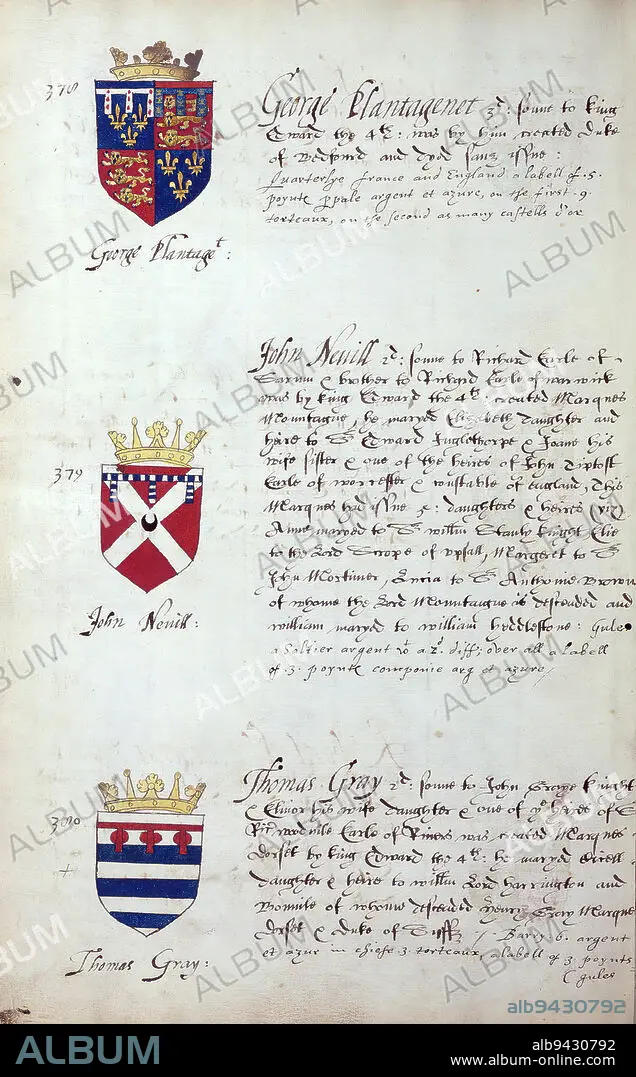 378
George Plantagenet 3d: sonne to king
Edward the 4th: was by him created Duke
of Bedford and dyed sanz issue:
Quarterlye france and England a labell of .5.
poynts p pale argent et azure, on the first .9.
torteaux, on the second as many castells d'or
George Plantaget:
379
John Nevill 2d: sonne to Richard Earle of
Sarum & brother to Richard Earle of warwick
was by king Edward the 4th: created Marques
Mountague, he maryed Elizabeth daughter and
heire to Sr Edward Inglethorpe & Joane his
wife sister & one of the heires of John Tiptoft
Earle of worcester & constable of England, This
Marques had issue 5: daughters & heires (viz)
Anne maryed to Sr willm Stonly knight Elie
to the Lord Scrope of upsall, Margeret to Sr
John Mortimer, Lucia to Sr Anthonie Browne
of whome the Lord Mountaigue is descended and
william maryed to william Heddlestone: Gules
a Saltier argent wt a 2d: diff: over all a labell
of .3. poynts componie arg et azure
John Nevill:
380
Thomas Gray 2d: sonne to John Graye knight
& Elinor his wife daughter & one of ye heires of Sr
Ric wodvile Earle of Rivers was created Marques
dorset by king Edward the 4th: he maryed Cicell
daughter & heire to willm Lord harrington and
Bonvile of whome descended Henry Gray Marques
dorset & duke of Suff / Bary .6. argent
et azur in chiefe 3 torteaux, a labell of 3 poynts
gules
Thomas Gray:
ALBUM
alb9430792
ALBUM
alb9430792
www.album-online.com